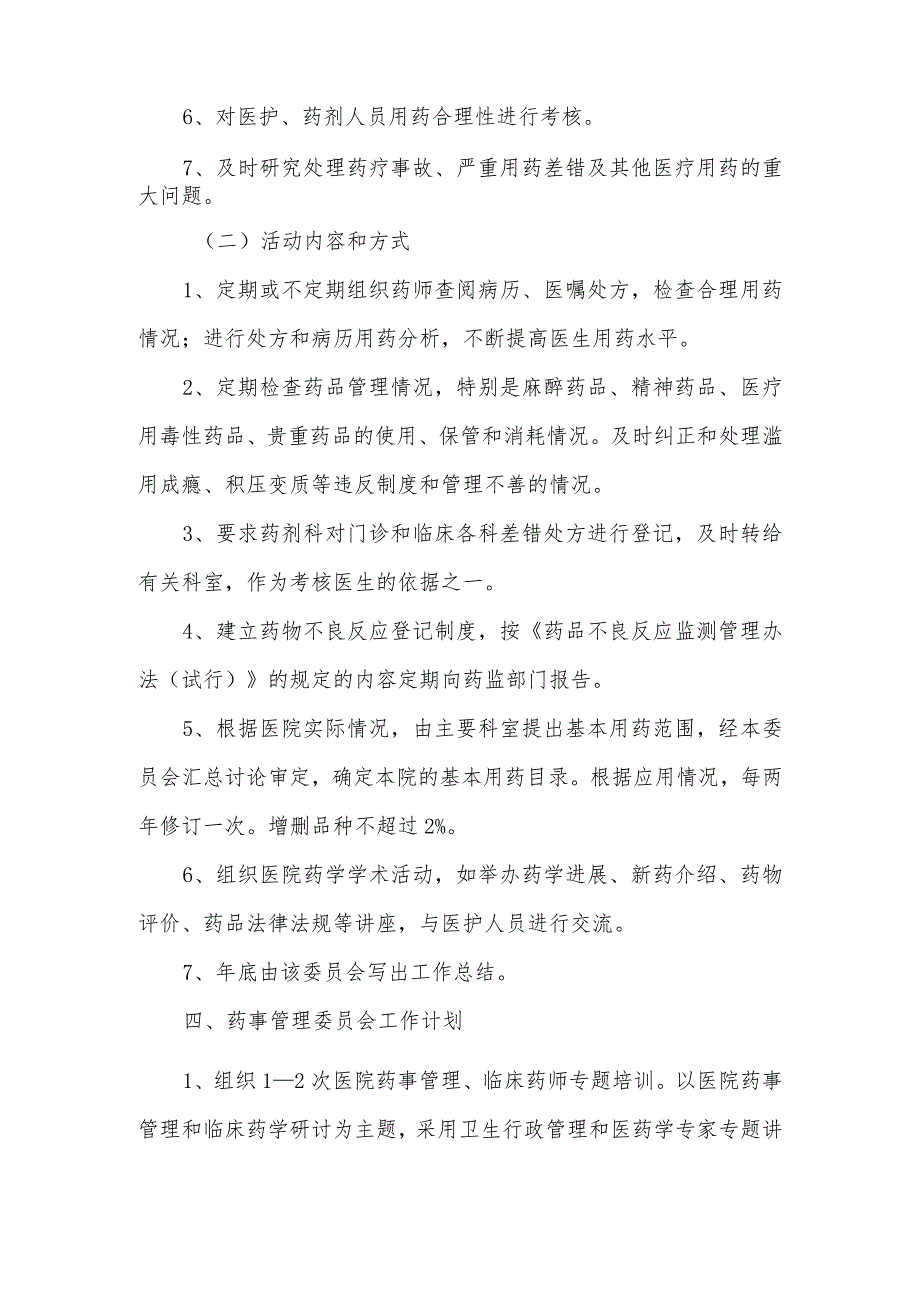 6、对医护、药剂人员用药合理性进行考核。
7、及时研究处理药疗事故、严重用药差错及其他医疗用药的重
大问题。
（二）活动内容和方式
1、定期或不定期组织药师查阅病历、医嘱处方，检查合理用药
情况；进行处方和病历用药分析，不断提高医生用药水平。
2、定期检查药品管理情况，特别是麻醉药品、精神药品、医疗
用毒性药品、贵重药品的使用、保管和消耗情况。及时纠正和处理滥
用成瘾、积压变质等违反制度和管理不善的情况。
3、要求药剂科对门诊和临床各科差错处方进行登记，及时转给
有关科室，作为考核医生的依据之一。
4、建立药物不良反应登记制度，按《药品不良反应监测管理办
法（试行）》的规定的内容定期向药监部门报告。
5、根据医院实际情况，由主要科室提出基本用药范围，经本委
员会汇总讨论审定，确定本院的基本用药目录。根据应用情况，每两
年修订一次。增删品种不超过2%。
6、组织医院药学学术活动，如举办药学进展、新药介绍、药物
评价、药品法律法规等讲座，与医护人员进行交流。
7、年底由该委员会写出工作总结。
四、药事管理委员会工作计划
1、组织1—2次医院药事管理、临床药师专题培训。以医院药事
管理和临床药学研讨为主题，采用卫生行政管理和医药学专家专题讲